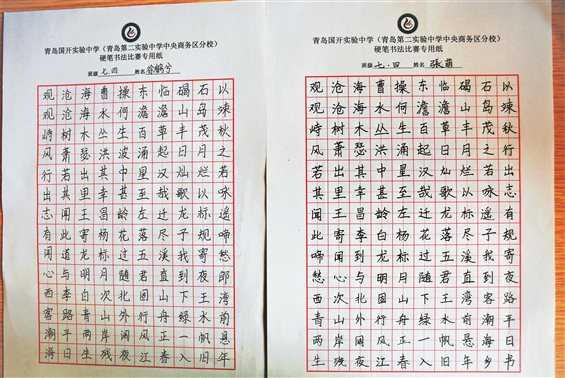 青岛国开实验中学（青岛第二实验中学中央商务区分校）
硬笔书法比赛专用纸
班级 七.四 姓名
观沧海曹操东临碣石以
观沧海水何澹澹山岛竦
峙树木丛生百草丰茂秋
风萧瑟洪波涌起日月之
行若出其中星汉灿烂若
出其里幸甚至哉歌以咏
志闻王昌龄左迁龙标遥
有此寄杨花落尽子规啼
闻道龙标过五溪我寄愁
心与明月随君直到夜郎
西李白次北固山下王湾
客路青山外行舟绿水前
潮平两岸阔风正一帆悬
海日生残夜江春入旧年
青岛国开实验中学（青岛第二实验中学中央商务区分校）
硬笔书法比赛专用纸
班级 七.四 姓名 张萌
观沧海曹操东临碣石以
观沧海水何澹澹山岛竦
峙树木丛生百草丰茂秋
风萧瑟洪涌起日月之行
若出其中星汉灿烂若出
其里幸甚至哉歌以咏志
闻王昌龄左迁龙标遥有
此寄李白杨花落尽子规
啼闻到龙标过五溪我寄
愁心与明月随君直到夜
西次北固山下王湾客路
青山外行舟绿水前潮平
两岸阔风正一帆悬海日
生残夜江春入旧年乡书